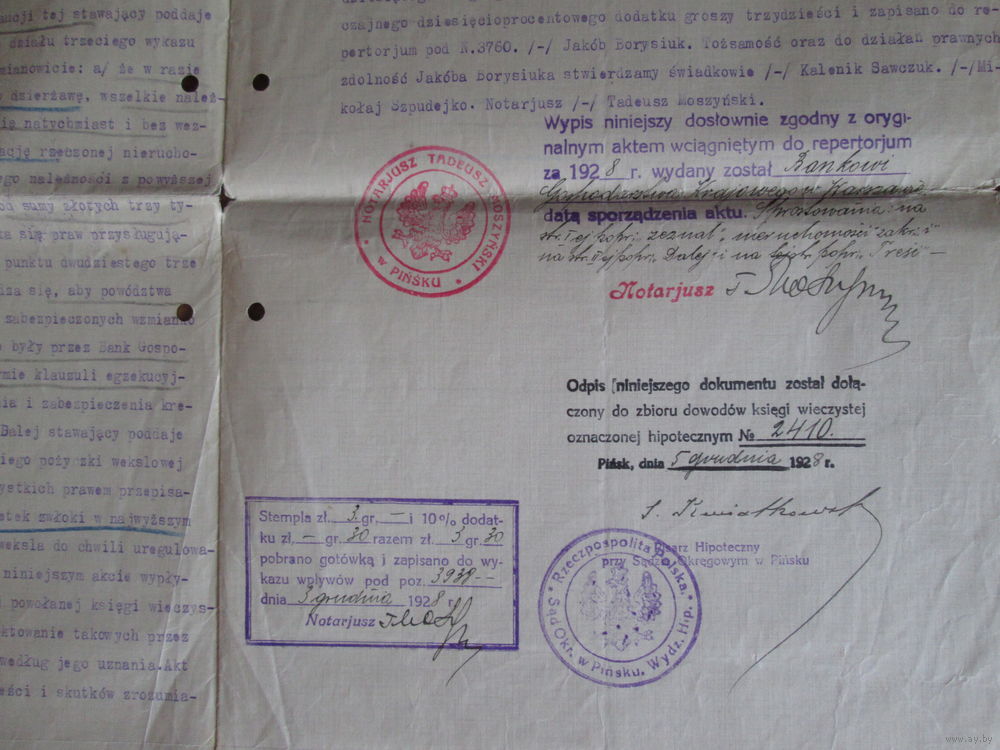 ancji tej stawający poddaje
działu trzeciego wykazu
mianowicie: a/ że w razie
dzierżawę, wszelkie należ-
natychmiast i bez wez-
ację rzeczonej nierucho-
ego należności z powyższej
od sumy złotych trzy ty-
ka się praw przysługują-
punktu dwudziestego trze
dza się, aby powództwa
zabezpieczonych wzmianko
były przez Bank Gospo-
rmie klauzuli egzekucyj-
nia i zabezpieczenia kre-
Dalej stawający poddaje
kiego pożyczki wekslowej
zystkich prawem przepisa-
etek zwłoki w najwyższym
weksla do chwili uregulowa-
niniejszym akcie wypły-
powołanej księgi wieczys-
ektowanie takowych przez
według jego uznania.Akt
eści i skutków zrozumia-
czajnego dziesięcioprocentowego dodatku groszy trzydzieści i zapisano do re-
pertorjum pod N.3760. /-/ Jakób Borysiuk. Tożsamość oraz do działań prawnych
zdolność Jakóba Borysiuka stwierdzamy świadkowie /-/ Kalenik Sawczuk. /-/Mi-
kołaj Szpudejko. Notarjusz /-/ Tadeusz Moszyński.
Wypis niniejszy dosłownie zgodny z orygi-
nalnym aktem wciągniętym do repertorjum
za 1928 r. wydany został Bankowi
Gospodarstwa Krajowego w Warszawie
datą sporządzenia aktu. Sprostowania: na
str. 1ej popr. zeznał, nieruchomości
na str. popr. Dalej i na popr. Treści –
NOTARJUSZ TADEUSZ MOSZYŃSKI
w PIŃSKU
Notarjusz T. Moszyński
Odpis niniejszego dokumentu został dołą-
czony do zbioru dowodów księgi wieczystej
oznaczonej hipotecznym № 2410.
Pińsk, dnia 5 grudnia 1928 r.
S. Kwiatkowski
Pisarz Hipoteczny
przy Sądzie Okręgowym w Pińsku
Rzeczpospolita Polska.
Sąd Okr. w Pińsku, Wydz. Hip.
Stempla zł. 3 gr. – i 10% dodat-
ku zł. – gr. 30 razem zł. 3 gr. 30
pobrano gotówką i zapisano do wy-
kazu wpływów pod poz. 3938 –
dnia 3 grudnia 1928 r.
Notarjusz T. Mosz
www.ay.by